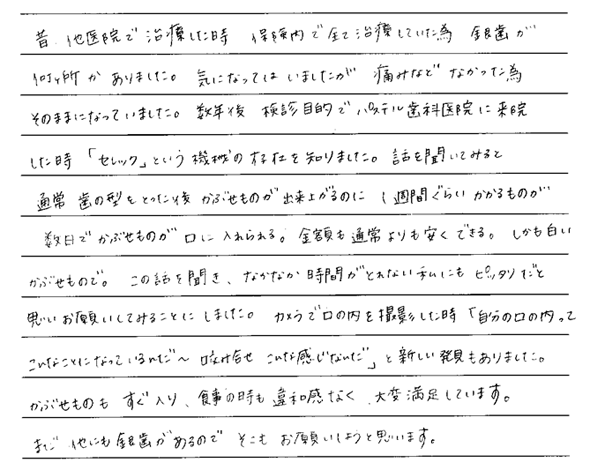 昔 他医院で治療した時 保険内で全て治療していた為 銀歯が
何ヶ所かありました。 気になってはいましたが 痛みなどなかった為
そのままになっていました。数年後 検診目的でパステル歯科医院に来院
した時「セレック」という機械の存在を知りました。話を聞いてみると
通常 歯の型をとった後 かぶせものが出来上がるのに 1週間ぐらいかかるものが
数日でかぶせものが口に入れられる。金額も通常よりも安くできる。しかも白い
かぶせもので。 この話を聞き、なかなか時間がとれない私にもピッタリだと
思いお願いしてみることにしました。 カメラで口の内を撮影した時「自分の口の内って
こんなことになっているんだ〜 咬み合せ こんな感じなんだ」と新しい発見もありました。
かぶせものも すぐ入り、食事の時も違和感なく、大変満足しています。
まだ 他にも銀歯があるので そこも お願いしようと思います。